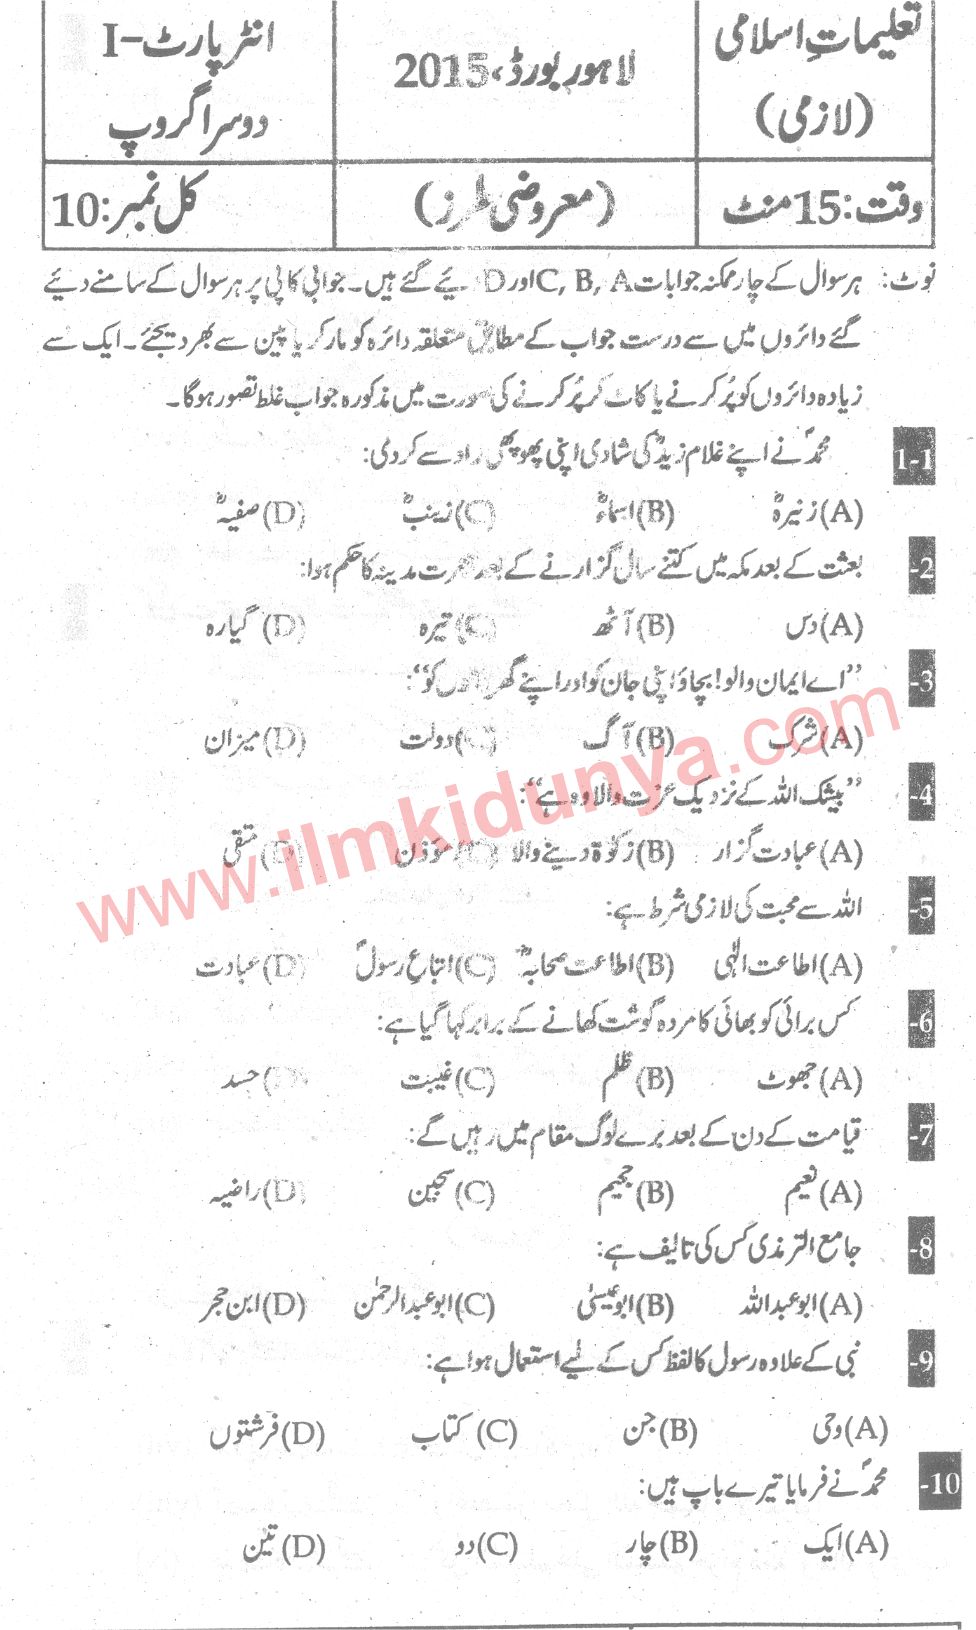 تعلیماتِ اسلامی
(لازمی)
لاہور بورڈ، 2015
انٹر پارٹ-I
دوسرا گروپ
وقت: 15 منٹ
(معروضی طرز)
کل نمبر: 10
نوٹ: ہر سوال کے چار ممکنہ جوابات C, B, A اور D دیئے گئے ہیں۔ جوابی کاپی پر ہر سوال کے سامنے دیئے
گئے دائروں میں سے درست جواب کے مطابق متعلقہ دائرہ کو مارکر یا پین سے بھر دیجئے۔ ایک سے
زیادہ دائروں کو پُر کرنے یا کاٹ کر پُر کرنے کی صورت میں مذکورہ جواب غلط تصور ہوگا۔
1-1 محمدؐ نے اپنے غلام زیدؓ کی شادی اپنی پھوپھی زاد سے کر دی:
(A) زنیرہؓ (B) اسماءؓ (C) زینبؓ (D) صفیہؓ
-2 بعثت کے بعد مکہ میں کتنے سال گزارنے کے بعد ہجرت مدینہ کا حکم ہوا:
(A) دس (B) آٹھ (C) تیرہ (D) گیارہ
-3 ”اے ایمان والو! بچاؤ اپنی جان کو اور اپنے گھر والوں کو“:
(A) شرک (B) آگ (C) دولت (D) میزان
-4 ”بیشک اللہ کے نزدیک عزت والا وہ ہے“:
(A) عبادت گزار (B) زکوٰۃ دینے والا (C) مؤذن (D) متقی
-5 اللہ سے محبت کی لازمی شرط ہے:
(A) اطاعت الٰہی (B) اطاعت صحابہؓ (C) اتباعِ رسولؐ (D) عبادت
-6 کس برائی کو بھائی کا مردہ گوشت کھانے کے برابر کہا گیا ہے:
(A) جھوٹ (B) ظلم (C) غیبت (D) حسد
-7 قیامت کے دن کے بعد برے لوگ مقام میں رہیں گے:
(A) نعیم (B) جحیم (C) سجین (D) راضیہ
-8 جامع الترمذی کس کی تالیف ہے:
(A) ابو عبداللہ (B) ابو عیسیٰ (C) ابو عبدالرحمٰن (D) ابن حجر
-9 نبی کے علاوہ رسول کا لفظ کس کے لیے استعمال ہوا ہے:
(A) وحی (B) جن (C) کتاب (D) فرشتوں
-10 محمدؐ نے فرمایا تیرے باپ ہیں:
(A) ایک (B) چار (C) دو (D) تین
www.ilmkidunya.com